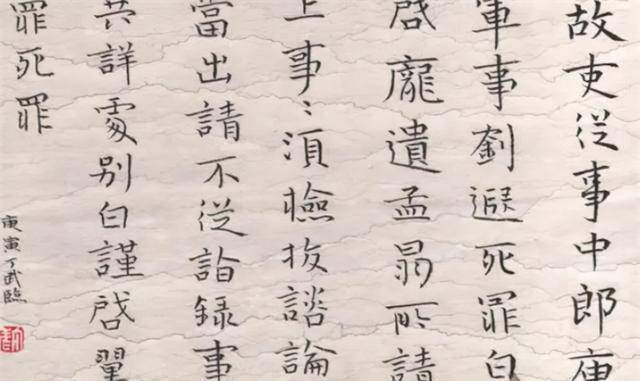 故吏从事中郎庾
軍事劉遐死罪白
啓龐遺孟昴所請
上事〻須檢校諮論
當出請不從詣録事
共詳處别白謹啓翼
罪死罪
庚寅丁武臨